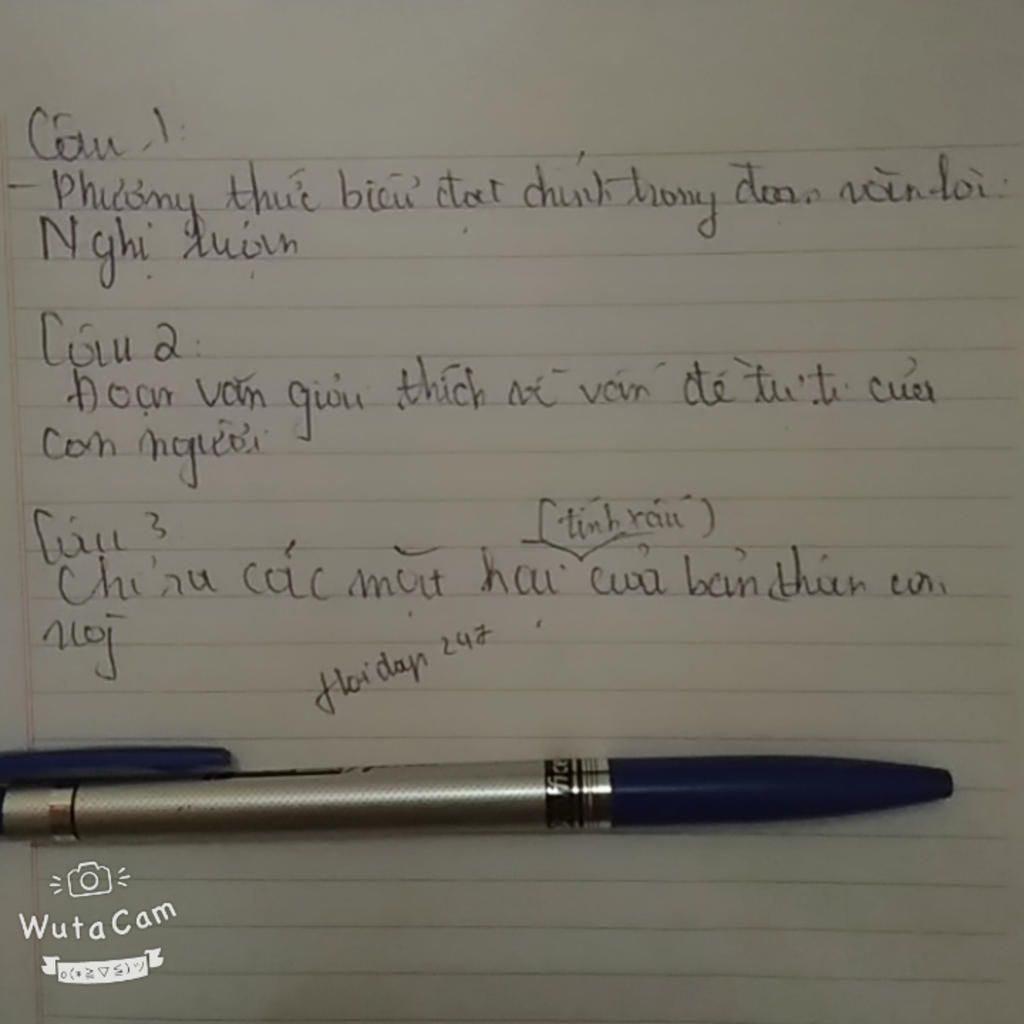 Câu 1:
- Phương thức biểu đạt chính trong đoạn văn loi:
Nghị luận
Câu 2:
Đoạn văn giải thích về vấn đề tự ti của
con người
(tính xấu)
Câu 3
Chỉ ra các mặt hại của bản thân con
Hoidap 247
WutaCam
o(*≧▽≦)ツ